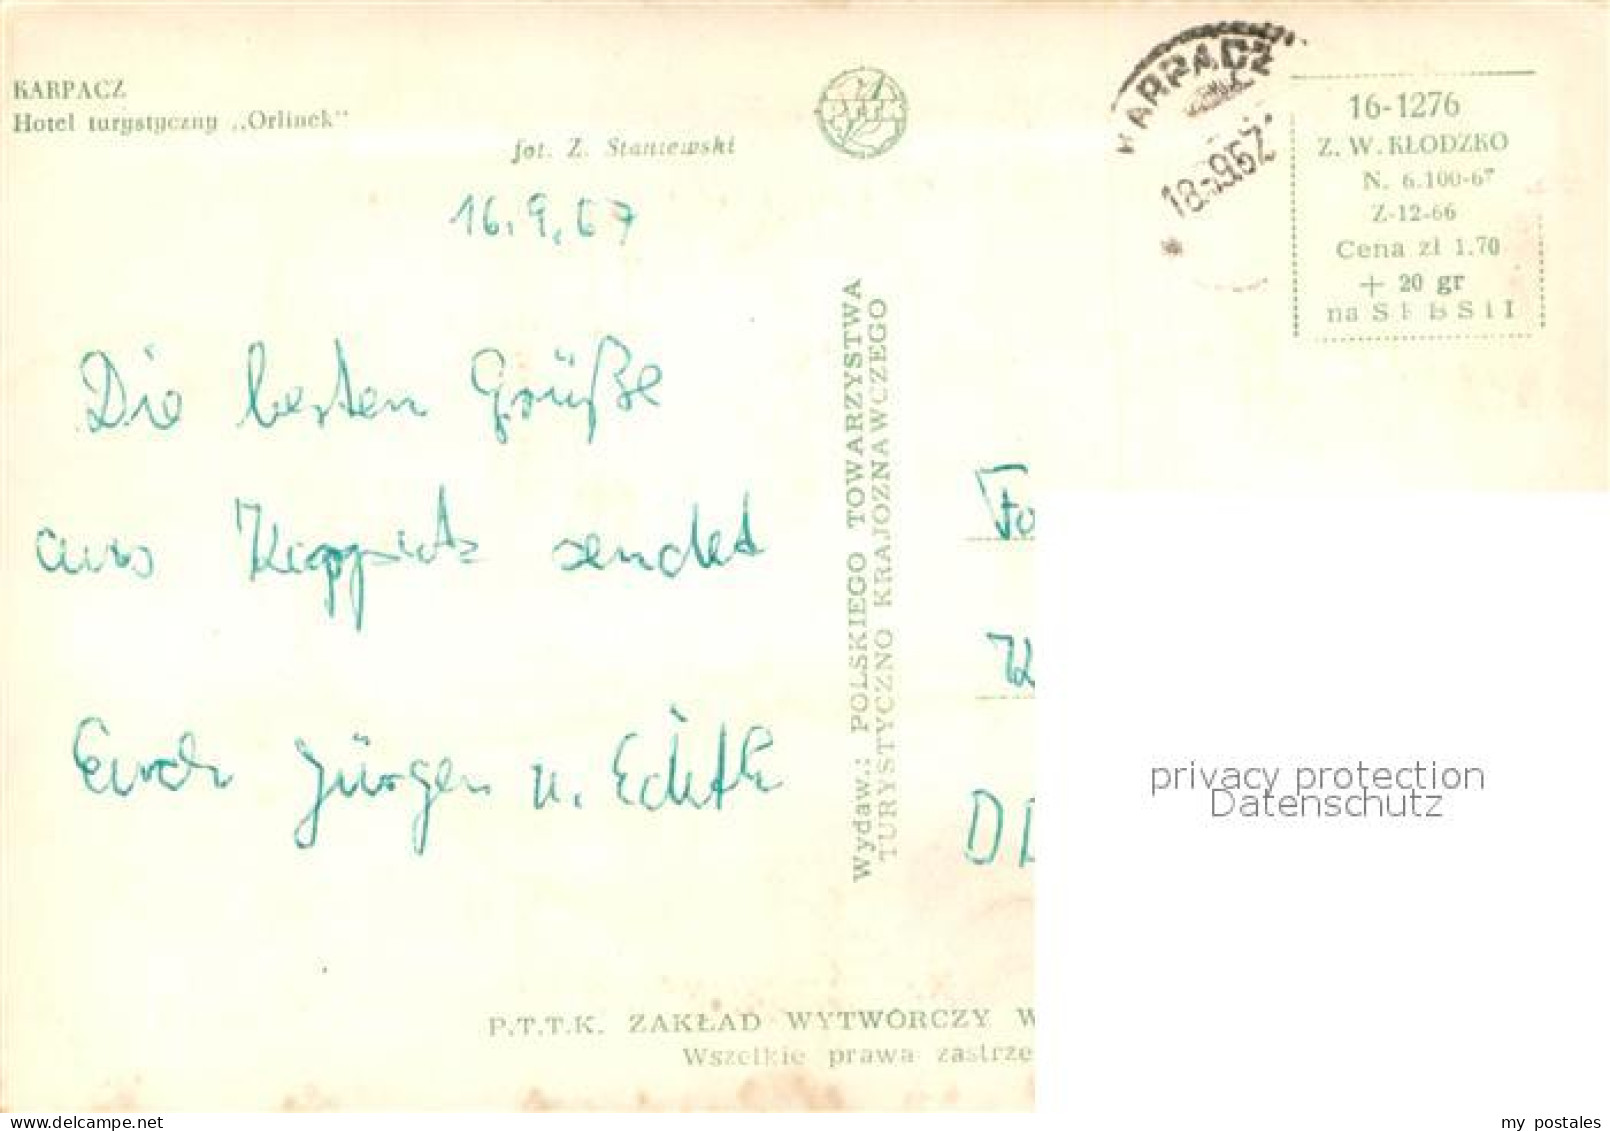 KARPACZ
Hotel turystyczny „Orlinek"
fot. Z. Staniewski
16.9.67
Die besten Grüße
aus sendet
Euch Jürgen u. Edith
Wydaw.: POLSKIEGO TOWARZYSTWA
TURYSTYCZNO KRAJOZNAWCZEGO
P.T.T.K. ZAKŁAD WYTWÓRCZY W
Wszelkie prawa zastrze
KARPACZ
18.-9.67
16-1276
Z. W. KŁODZKO
N. 6.100-67
Z-12-66
Cena zł 1.70
+ 20 gr
na SFBSiI
Fa
K
DD
privacy protection
Datenschutz
my postales